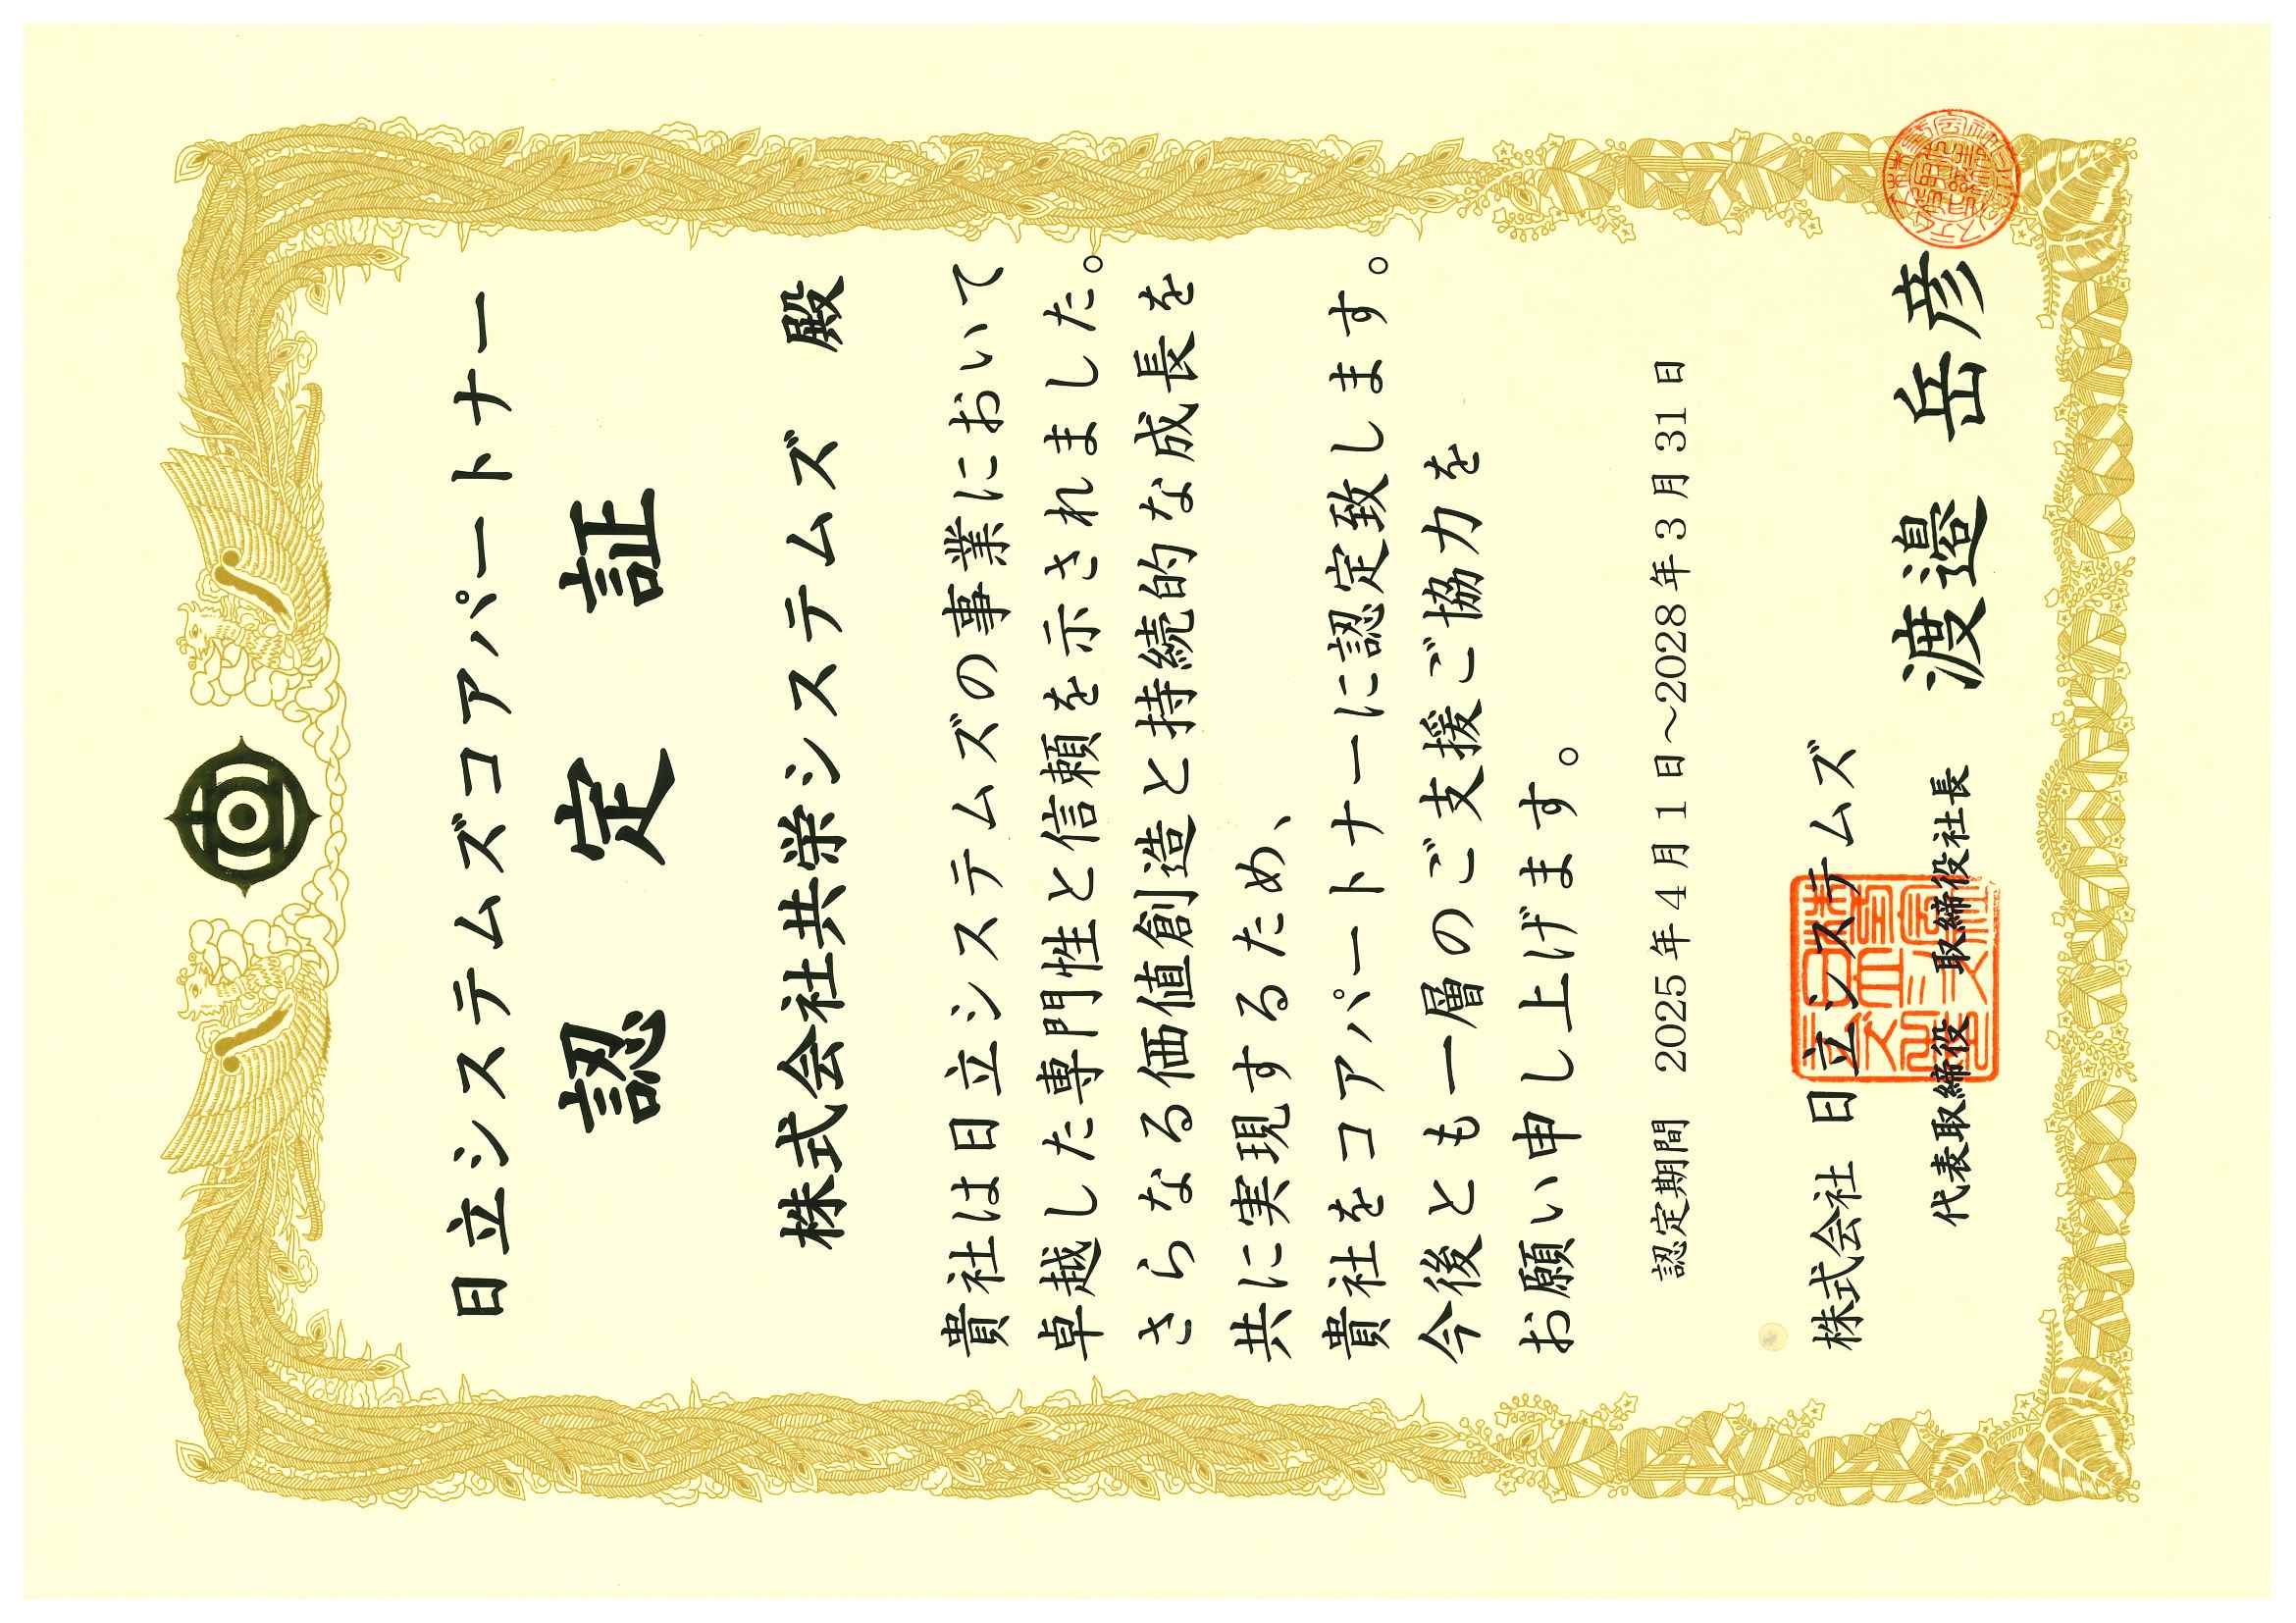 日立システムズコアパートナー
認定証
株式会社共栄システムズ 殿
貴社は日立システムズの事業において
卓越した専門性と信頼を示されました。
さらなる価値創造と持続的な成長を
共に実現するため、
貴社をコアパートナーに認定致します。
今後とも一層のご支援ご協力を
お願い申し上げます。
認定期間 2025年4月1日～2028年3月31日
株式会社 日立システムズ
代表取締役 取締役社長 渡邉 岳彦